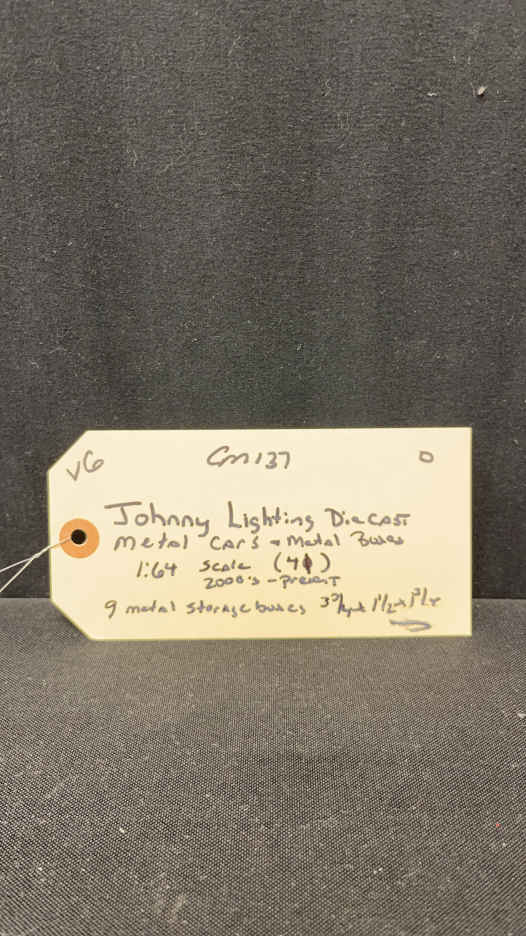 VG Cm137 0
Johnny Lighting Diecast
metal cars + Metal Boxes
1:64 Scale (41)
2000's - Present
9 metal storage boxes 3 3/4 x 1 1/2 x 1 3/4